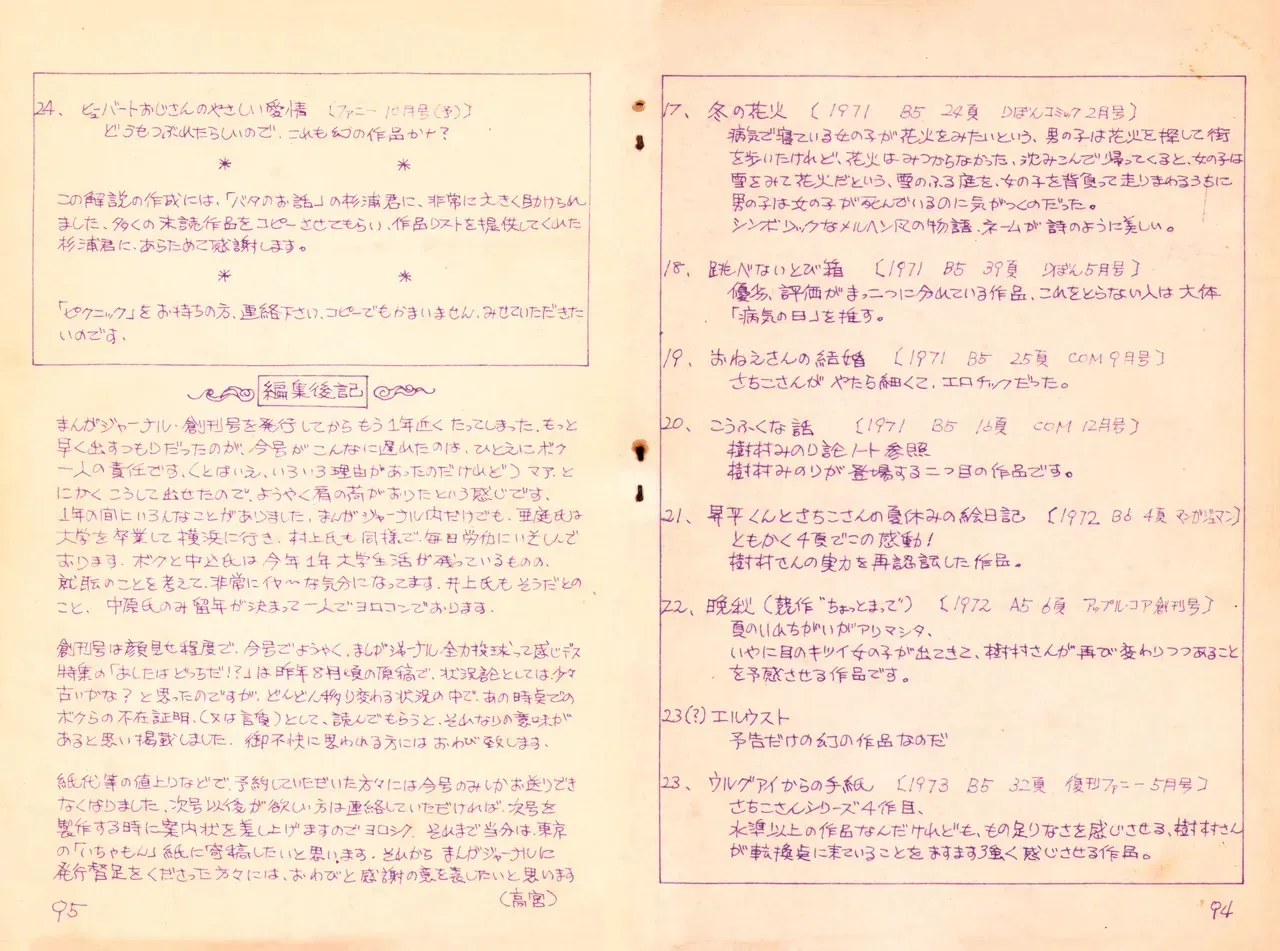 17、 冬の花火 〔1971 B5 24頁 りぼんコミック2月号〕
病気で寝ている女の子が花火をみたいという、男の子は花火を探して街
を歩いたけれど、花火はみつからなかった、沈みこんで帰ってくると、女の子は
雪をみて花火だという、雪のふる庭を、女の子を背負って走りまわるうちに
男の子は女の子が死んでいるのに気がつくのだった。
シンボリックなメルヘン風の物語、ネームが詩のように美しい。
18、 跳べないとび箱 〔1971 B5 39頁 りぼん5月号〕
優劣、評価がまっ二つに分れている作品、これをとらない人は大体
「病気の日」を推す。
19、 おねえさんの結婚 〔1971 B5 25頁 COM9月号〕
さちこさんがやたら細くて、エロチックだった。
20、 こうふくな話 〔1971 B5 16頁 COM12月号〕
樹村みのり論ノート参照
樹村みのりが登場する二つ目の作品です。
21、 昇平くんとさちこさんの夏休みの絵日記 〔1972 B6 4頁 マンガジュマン〕
ともかく4頁でこの感動!
樹村さんの実力を再認識した作品。
22、 晩秋(競作“ちょっとまって”) 〔1972 A5 6頁 アップル・コア創刊号〕
夏のいれちがいがアリマシタ、
いやに目のキツイ女の子が出てきて、樹村さんが再び変わりつつあること
を予感させる作品です。
23(?) エルウスト
予告だけの幻の作品なのだ
23、 ウルグアイからの手紙 〔1973 B5 32頁 復刊ファニー5月号〕
さちこさんシリーズ4作目、
水準以上の作品なんだけれども、もの足りなさを感じさせる、樹村さん
が転換点に来ていることをますます強く感じさせる作品。
94
24、 ヒューバートおじさんのやさしい愛情 〔ファニー10月号(予)〕
どうもつぶれたらしいので、これも幻の作品かナ?
* *
この解説の作成には、「バタのお話」の杉浦君に、非常に大きく助けられ
ました、多くの未読作品をコピーさせてもらい、作品リストを提供してくれた
杉浦君に、あらためて感謝します。
* *
「ピクニック」をお持ちの方、連絡下さい、コピーでもかまいません、みせていただきた
いのです、
編集後記
まんがジャーナル・創刊号を発行してからもう1年近くたってしまった、もっと
早く出すつもりだったのが、今号がこんなに遅れたのは、ひとえにボク
一人の責任です、(とはいえ、いろいろ理由があったのだけれど)マア、と
にかくこうして出せたので、ようやく肩の荷がおりたという感じです、
1年の間にいろんなことがありました、まんがジャーナル内だけでも、亜庭氏は
大学を卒業して横浜に行き、村上氏も同様で、毎日労働にいそしんで
おります、ボクと中込氏は今年1年大学生活が残っているものの、
就職のことを考えて、非常にイヤ〜な気分になってます、井上氏もそうだとの
こと、中原氏のみ留年が決まって一人でヨロコンでおります、
創刊号は顔見せ程度で、今号でようやく、まんがジャーナル全力投球って感じデス
特集の「あしたはどっちだ!?」は昨年8月頃の原稿で、状況論としては少々
古いかな?と思ったのですが、どんどん移り変わる状況の中で、あの時点での
ボクらの不在証明、(又は言質)として、読んでもらうと、それなりの意味が
あると思い掲載しました、御不快に思われる方にはおわび致します、
紙代等の値上りなどで、予約していただいた方々には今号のみしかお送りでき
なくなりました、次号以後が欲しい方は連絡していただければ、次号を
製作する時に案内状を差し上げますのでヨロシク、それまで当分は、東京
の「いちゃもん」紙に寄稿したいと思います、それから まんがジャーナルに
発行督促をくださった方々には、おわびと感謝の意を表したいと思います
(高宮)
95